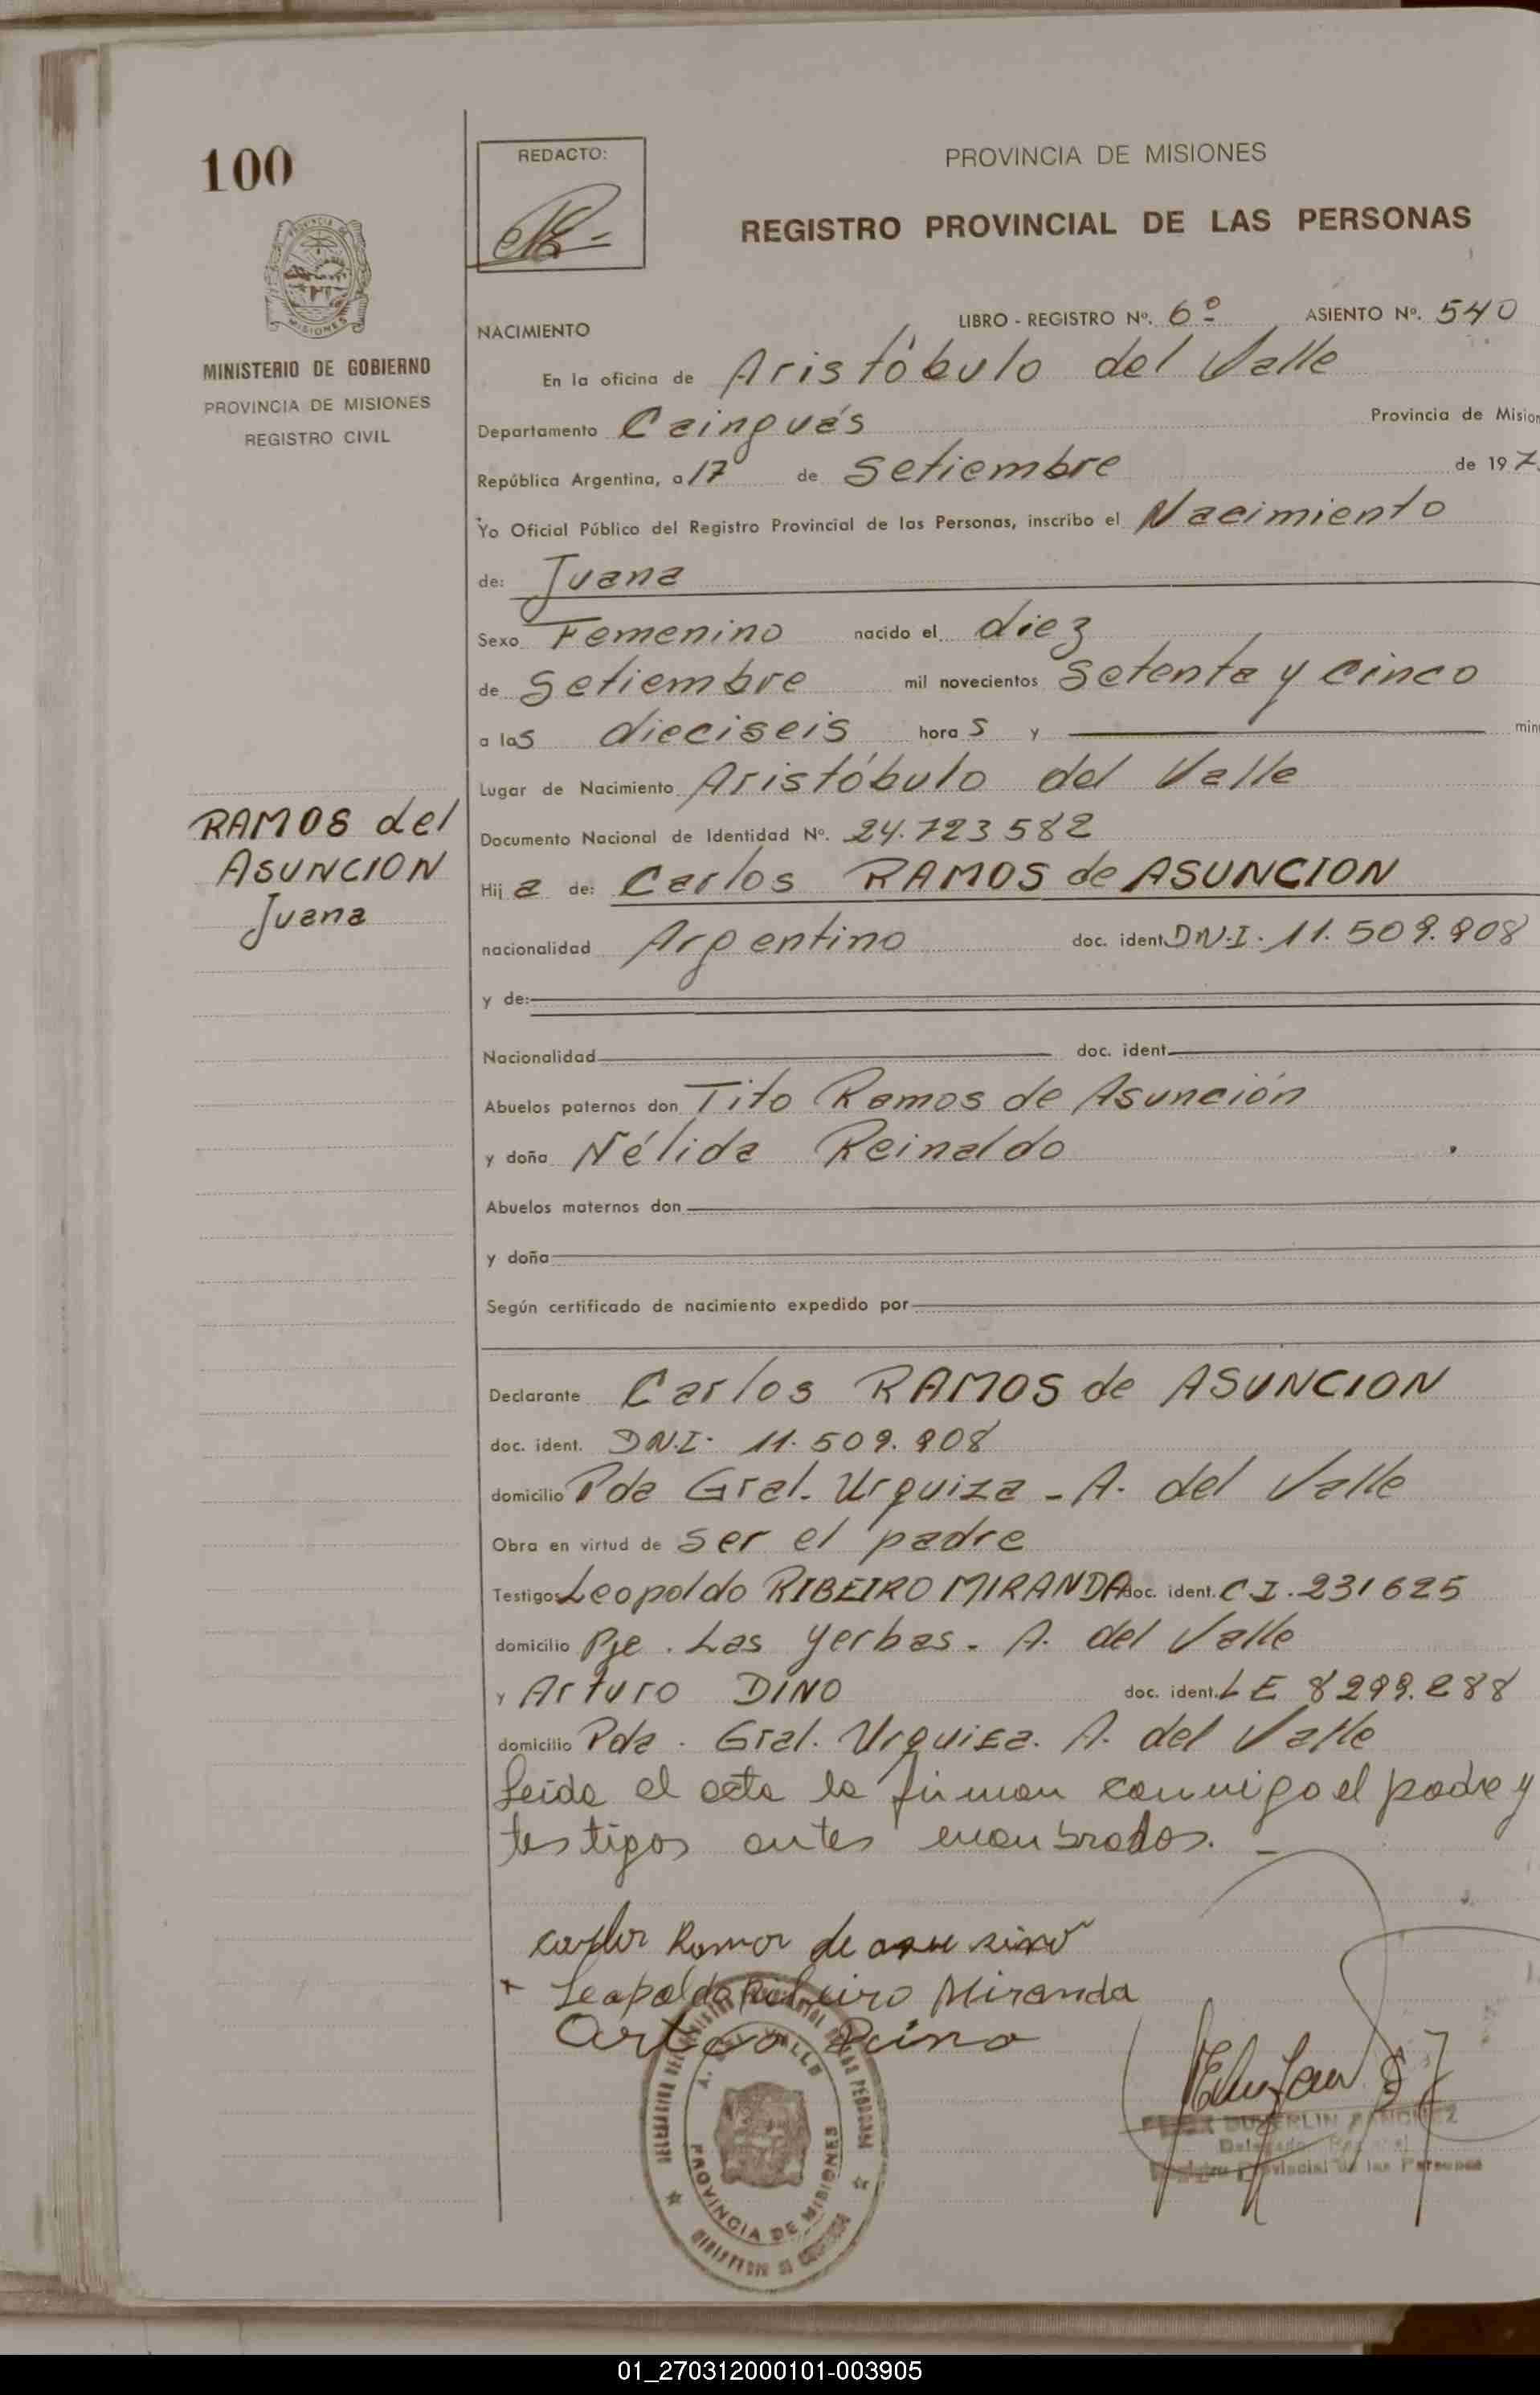 100
REDACTO:
PROVINCIA DE MISIONES
REGISTRO PROVINCIAL DE LAS PERSONAS
MISIONES
MINISTERIO DE GOBIERNO
PROVINCIA DE MISIONES
REGISTRO CIVIL
NACIMIENTO
LIBRO - REGISTRO Nº. 6º ASIENTO Nº. 540
En la oficina de Aristóbulo del Valle
Departamento Cainguás Provincia de Mision
República Argentina, a 17 de Setiembre de 197
Yo Oficial Público del Registro Provincial de las Personas, inscribo el Nacimiento
de: Juana
Sexo Femenino nacido el diez
de Setiembre mil novecientos Setenta y cinco
a las dieciseis horas y min
Lugar de Nacimiento Aristóbulo del Valle
RAMOS del
ASUNCION
Juana
Documento Nacional de Identidad Nº. 24.723582
Hija de: Carlos RAMOS de ASUNCION
nacionalidad Argentino doc. ident. DN.I. 11.509.908
y de:
Nacionalidad doc. ident.
Abuelos paternos don Tito Ramos de Asunción
y doña Nélida Reinaldo
Abuelos maternos don
y doña
Según certificado de nacimiento expedido por
Declarante Carlos RAMOS de ASUNCION
doc. ident. DN.I. 11.509.908
domicilio Pda Gral. Urquiza - A. del Valle
Obra en virtud de ser el padre
Testigos Leopoldo RIBEIRO MIRANDA doc. ident. C I. 231625
domicilio Pje. Las Yerbas - A. del Valle
y Arturo DINO doc. ident. LE 8299.288
domicilio Pda. Gral. Urquiza. A. del Valle
Leida el acta la firman conmigo el padre y
testigos antes nombrados. -
Carlos Ramos de
Leopoldo Ribeiro Miranda
Arturo Dino
A. DEL VALLE
PROVINCIA DE MISIONES
SANCHEZ
Registro Provincial de las Personas
01_270312000101-003905